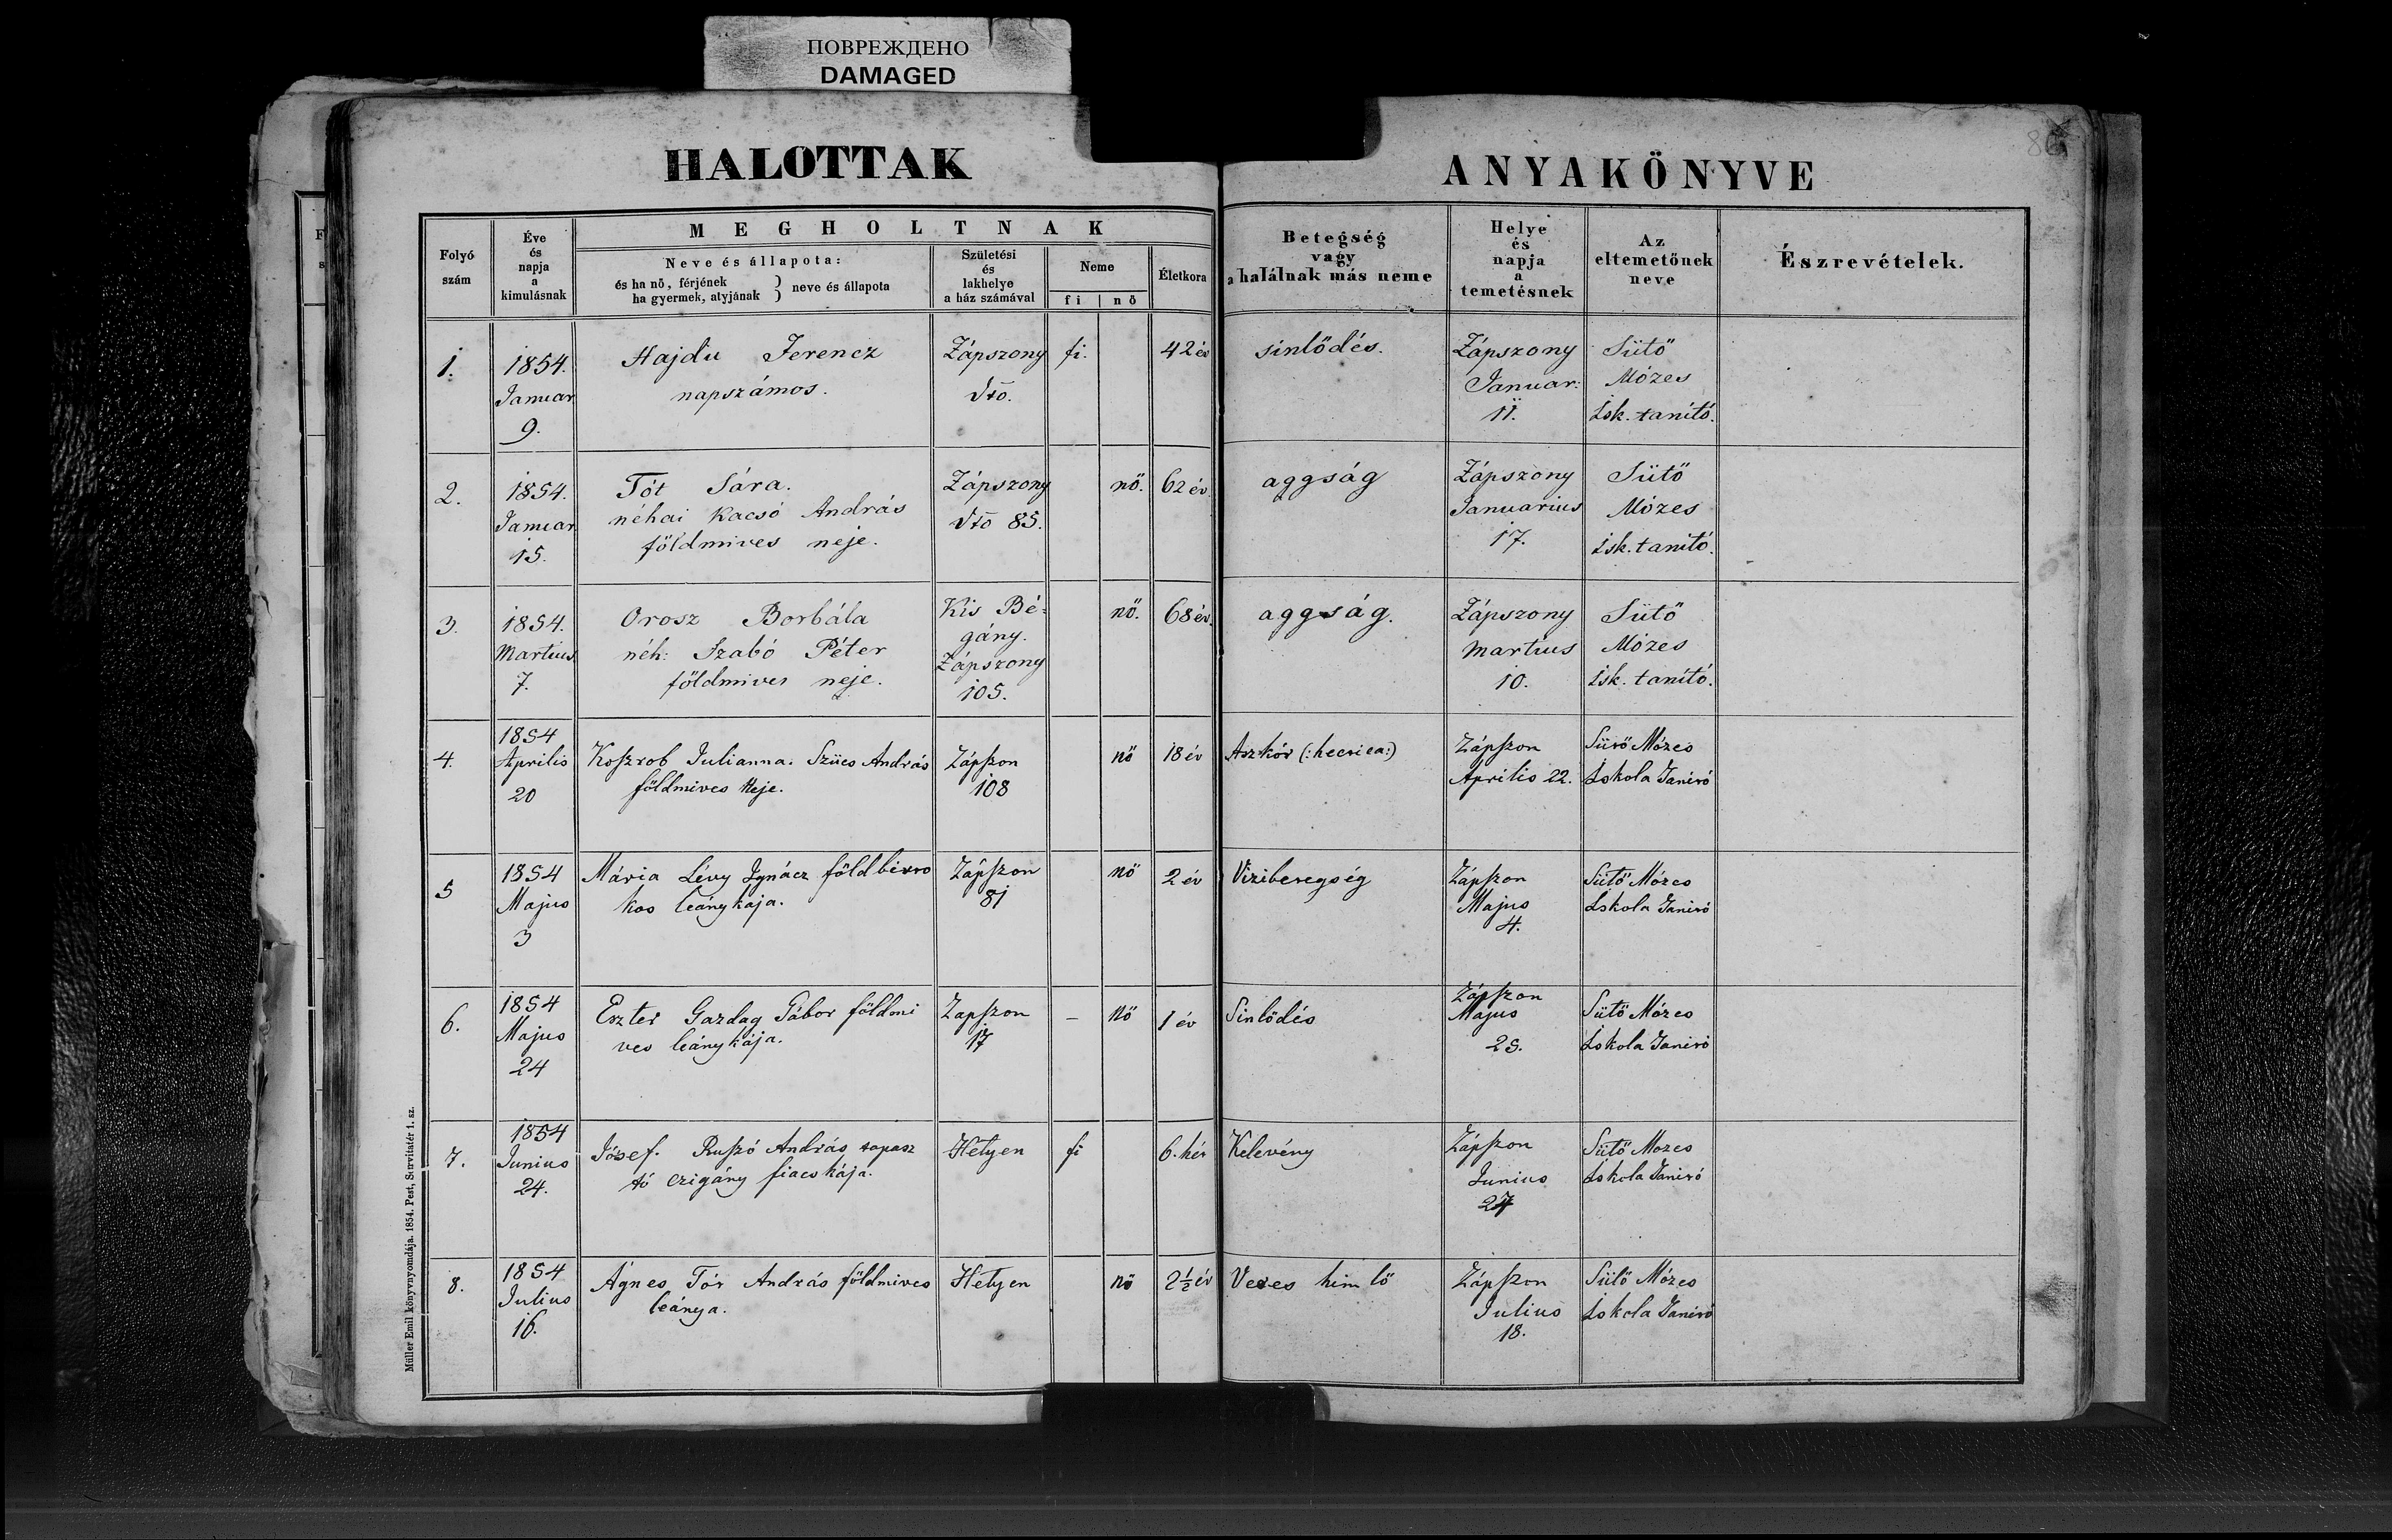 ПОВРЕЖДЕНО
DAMAGED
HALOTTAK
ANYAKÖNYVE
Folyó
szám
Éve
és
napja
a
kimulásnak
MEGHOLTNAK
Neve és állapota:
és ha nő, férjének
ha gyermek, atyjának } neve és állapota
Születési
és
lakhelye
a ház számával
Neme
fi | nő
Életkora
Betegség
vagy
a halálnak más neme
Helye
és
napja
a
temetésnek
Az
eltemetőnek
neve
Észrevételek.
1.
1854.
Januar
9.
Hajdu Ferencz
napszámos.
Zápszony
dto.
fi.
42 év
sinlődés.
Zápszony
Januar:
11.
Sütő
Mózes
Isk. tanító.
2.
1854.
Januar
15.
Tót Sára.
néhai Kacsó András
földmives neje.
Zápszony
dto 85.
nő.
62 év
aggság
Zápszony
Januarius
17.
Sütő
Mózes
Isk. tanító.
3.
1854.
Martius
7.
Orosz Borbála
néh: Szabó Péter
földmives neje.
Kis Bé-
gány.
Zápszony
105.
nő.
68 év.
aggság.
Zápszony
Martius
10.
Sütő
Mózes
Isk. tanító.
4.
1854
Aprilis
20
Koszrob Julianna. Szücs András
földmives Neje.
Zápszon
108
nő
18 év
Aszkór (:hectica:)
Zápszon
Aprilis 22.
Sütő Mózes
Iskola Tanitó
5
1854
Majus
3
Mária Lévy Ignácz földbirto
kos leánykája.
Zápszon
81
nő
2 év
Vizibetegség
Zápszon
Majus
4.
Sütő Mózes
Iskola Tanitó
6.
1854
Majus
24
Eszter Gazdag Gábor földmi
ves leánykája.
Zapszon
17
–
Nő
1 év
Sinlődés
Zápszon
Majus
25.
Sütő Mózes
Iskola Tanitó
7.
1854
Junius
24.
Jósef. Ruszó András tapasz
tó czigány fiacskája.
Helyen
fi
6. hét
Kelevény
Zápszon
Junius
Sütő Mozes
Iskola Tanitó
8.
1854
Julius
16.
Ágnes Tót András földmives
leánya.
Helyen
nő
2½ év
Veres himlő
Zápszon
Julius
18.
Sütő Mózes
Iskola Tanitó
Müller Emil könyvnyomdája. 1854. Pest, Servitatér 1. sz.